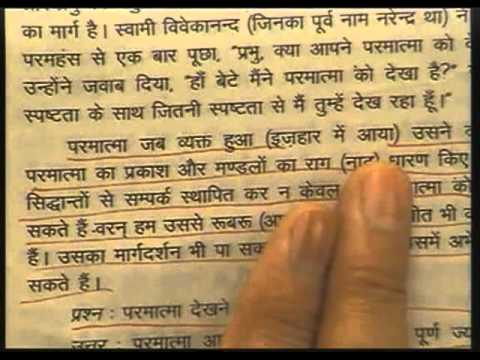 का मार्ग है। स्वामी विवेकानन्द (जिनका पूर्व नाम नरेन्द्र था) ने
परमहंस से एक बार पूछा, "प्रभु, क्या आपने परमात्मा को
उन्होंने जवाब दिया, "हाँ बेटे मैंने परमात्मा को देखा है?"
स्पष्टता के साथ जितनी स्पष्टता से मैं तुम्हें देख रहा हूँ।"
परमात्मा जब व्यक्त हुआ (इज़हार में आया) उसने
परमात्मा का प्रकाश और मण्डलों का राग (नाद) धारण किए
सिद्धान्तों से सम्पर्क स्थापित कर न केवल को
सकते हैं-वरन् हम उससे रूबरू भी
हैं। उसका मार्गदर्शन भी पा उसमें
सकते हैं।
प्रश्न : परमात्मा देखने
उत्तर : परमात्मा पूर्ण